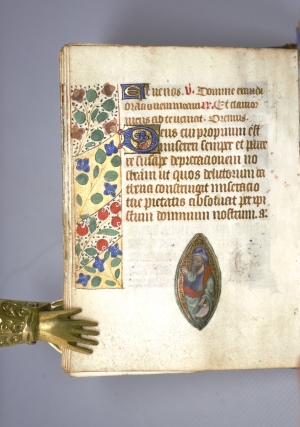 Et ne nos. V. Domine exaudi
orationem meam. R. Et clamor
meus ad te veniat. Oremus.
Deus cui proprium est
misereri semper et parce
re suscipe deprecationem no
stram ut quos delictorum ca
tena constringit miseratio
tue pietatis absoluat per xpi
stum dominum nostrum. a